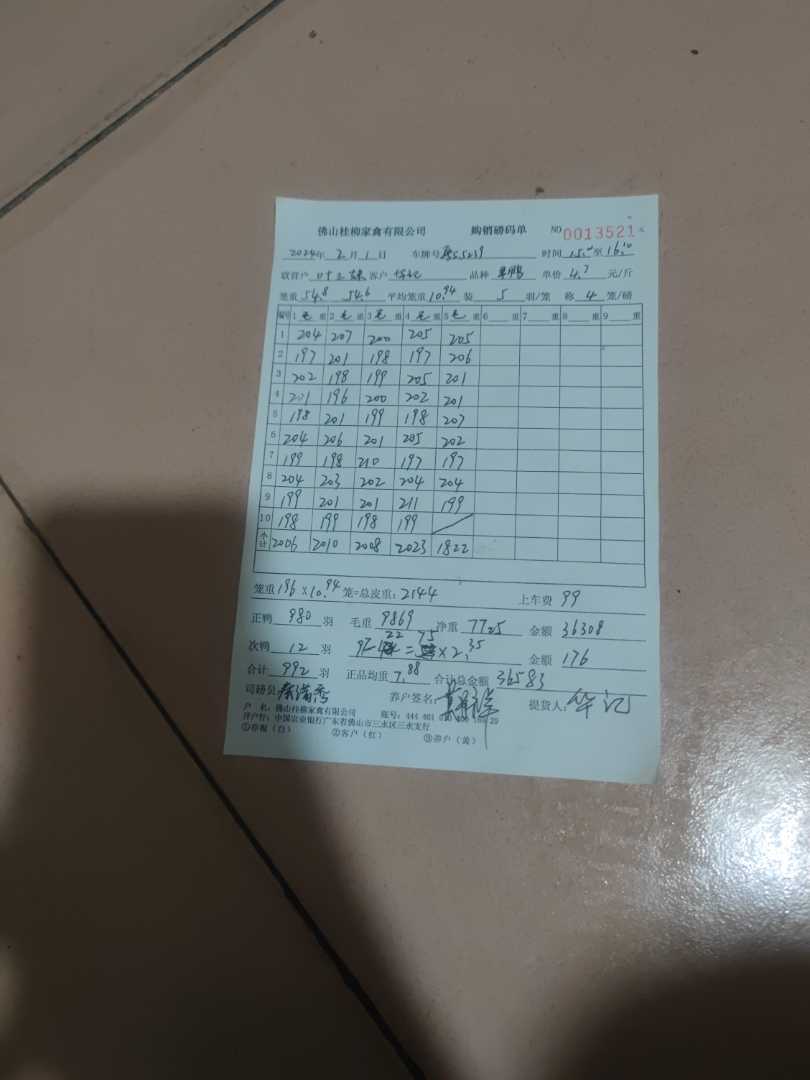 佛山桂柳家禽有限公司 购销磅码单 NO 0013521
2024年 2月 1日 车牌号 时间 15.00至16.10
联营户 客户 品种 单价 4.7 元/斤
笼重 54.8 54.6 平均笼重 10.94 装 5 羽/笼 称 4 笼/磅
编号 1 毛 重 2 毛 重 3 毛 重 4 毛 重 5 毛 重 6 重 7 重 8 重 9 重
1 204 207 200 205 205
2 197 201 198 197 206
3 202 198 199 205 201
4 201 196 200 202 201
5 198 201 199 198 207
6 204 206 201 205 202
7 199 198 210 197 197
8 204 203 202 204 204
9 199 201 201 211 199
10 198 199 198 199
小计 2006 2010 2008 2023 1822
笼重 196×10.94 笼=总皮重: 2144 上车费 99
正鸭 980 羽 毛重 9869 净重 7725 金额 36308
次鸭 12 羽 97-22=75×2.35 金额 176
合计 992 羽 正品均重 7.88 合计总金额 36583
司磅员: 养户签名: 提货人: 华记
户 名: 佛山桂柳家禽有限公司 账号: 444 461
开户行: 中国农业银行广东省佛山市三水区三水支行
①存根(白) ②客户(红) ③养户(黄)